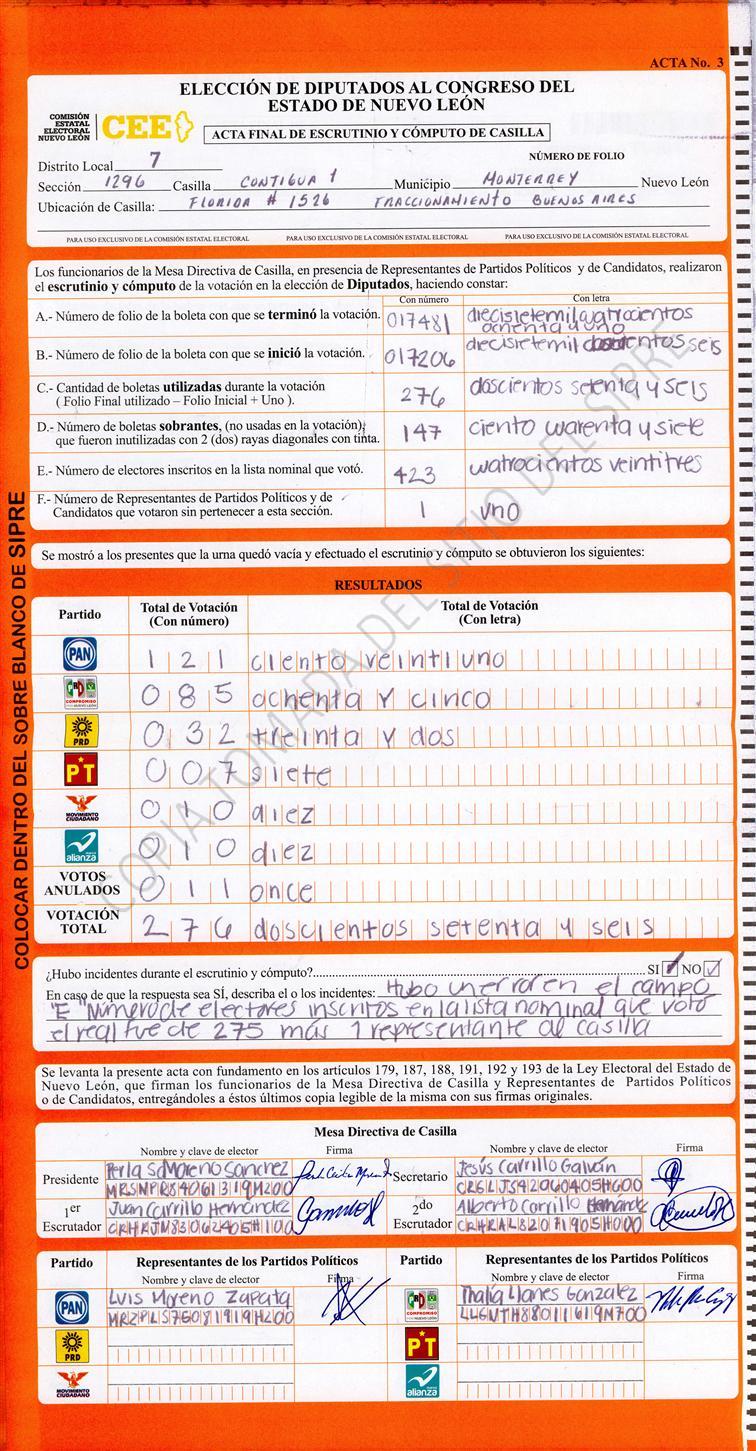 ACTA No. 3
ELECCIÓN DE DIPUTADOS AL CONGRESO DEL
ESTADO DE NUEVO LEÓN
COMISIÓN
ESTATAL
ELECTORAL
NUEVO LEÓN
CEE
ACTA FINAL DE ESCRUTINIO Y CÓMPUTO DE CASILLA
Distrito Local 7
NÚMERO DE FOLIO
Sección 1296 Casilla CONTIGUA 1 Municipio MONTERREY Nuevo León
Ubicación de Casilla: FLORIDA # 1526 FRACCIONAMIENTO BUENOS AIRES
PARA USO EXCLUSIVO DE LA COMISIÓN ESTATAL ELECTORAL PARA USO EXCLUSIVO DE LA COMISIÓN ESTATAL ELECTORAL PARA USO EXCLUSIVO DE LA COMISIÓN ESTATAL ELECTORAL
Los funcionarios de la Mesa Directiva de Casilla, en presencia de Representantes de Partidos Políticos y de Candidatos, realizaron
el escrutinio y cómputo de la votación en la elección de Diputados, haciendo constar:
Con número Con letra
A.- Número de folio de la boleta con que se terminó la votación. 017481 diecisietemil cuatrocientos
ochenta y uno
B.- Número de folio de la boleta con que se inició la votación. 017206 diecisietemil doscientos seis
C.- Cantidad de boletas utilizadas durante la votación
( Folio Final utilizado – Folio Inicial + Uno ). 276 doscientos setenta y seis
D.- Número de boletas sobrantes, (no usadas en la votación)
que fueron inutilizadas con 2 (dos) rayas diagonales con tinta. 147 ciento cuarenta y siete
E.- Número de electores inscritos en la lista nominal que votó. 423 cuatrocientos veintitres
F.- Número de Representantes de Partidos Políticos y de
Candidatos que votaron sin pertenecer a esta sección. 1 uno
Se mostró a los presentes que la urna quedó vacía y efectuado el escrutinio y cómputo se obtuvieron los siguientes:
RESULTADOS
Partido Total de Votación Total de Votación
(Con número) (Con letra)
PAN 121 ciento veintiuno
PRD COMPROMISO POR NUEVO LEÓN 085 ochenta y cinco
PRD 032 treinta y dos
PT 007 siete
MOVIMIENTO CIUDADANO 010 diez
alianza 010 diez
VOTOS
ANULADOS 011 once
VOTACIÓN
TOTAL 276 doscientos setenta y seis
COLOCAR DENTRO DEL SOBRE BLANCO DE SIPRE
COPIA TOMADA DEL SITIO DEL SIPRE
¿Hubo incidentes durante el escrutinio y cómputo? SI NO
En caso de que la respuesta sea SÍ, describa el o los incidentes: Hubo un error en el campo
"E" Número de electores inscritos en la lista nominal que votó
el real fue de 275 más 1 representante de casilla
Se levanta la presente acta con fundamento en los artículos 179, 187, 188, 191, 192 y 193 de la Ley Electoral del Estado de
Nuevo León, que firman los funcionarios de la Mesa Directiva de Casilla y Representantes de Partidos Políticos
o de Candidatos, entregándoles a éstos últimos copia legible de la misma con sus firmas originales.
Mesa Directiva de Casilla
Nombre y clave de elector Firma Nombre y clave de elector Firma
Presidente Perla Moreno Sanchez Secretario Jesús Carrillo Galván
MRSNPR84061319M200
1er
Escrutador Juan Carrillo Hernández
CRHRJN83062405H100
2do
Escrutador Alberto Carrillo Hernandz
CRHRAL82071905H000
Partido Representantes de los Partidos Políticos Partido Representantes de los Partidos Políticos
Nombre y clave de elector Firma Nombre y clave de elector Firma
PAN Luis Moreno Zapata
MRZPLS75081919H200
Thalia Llanes Gonzalez
LLGNTH88011619M700
PRD PT
MOVIMIENTO CIUDADANO alianza